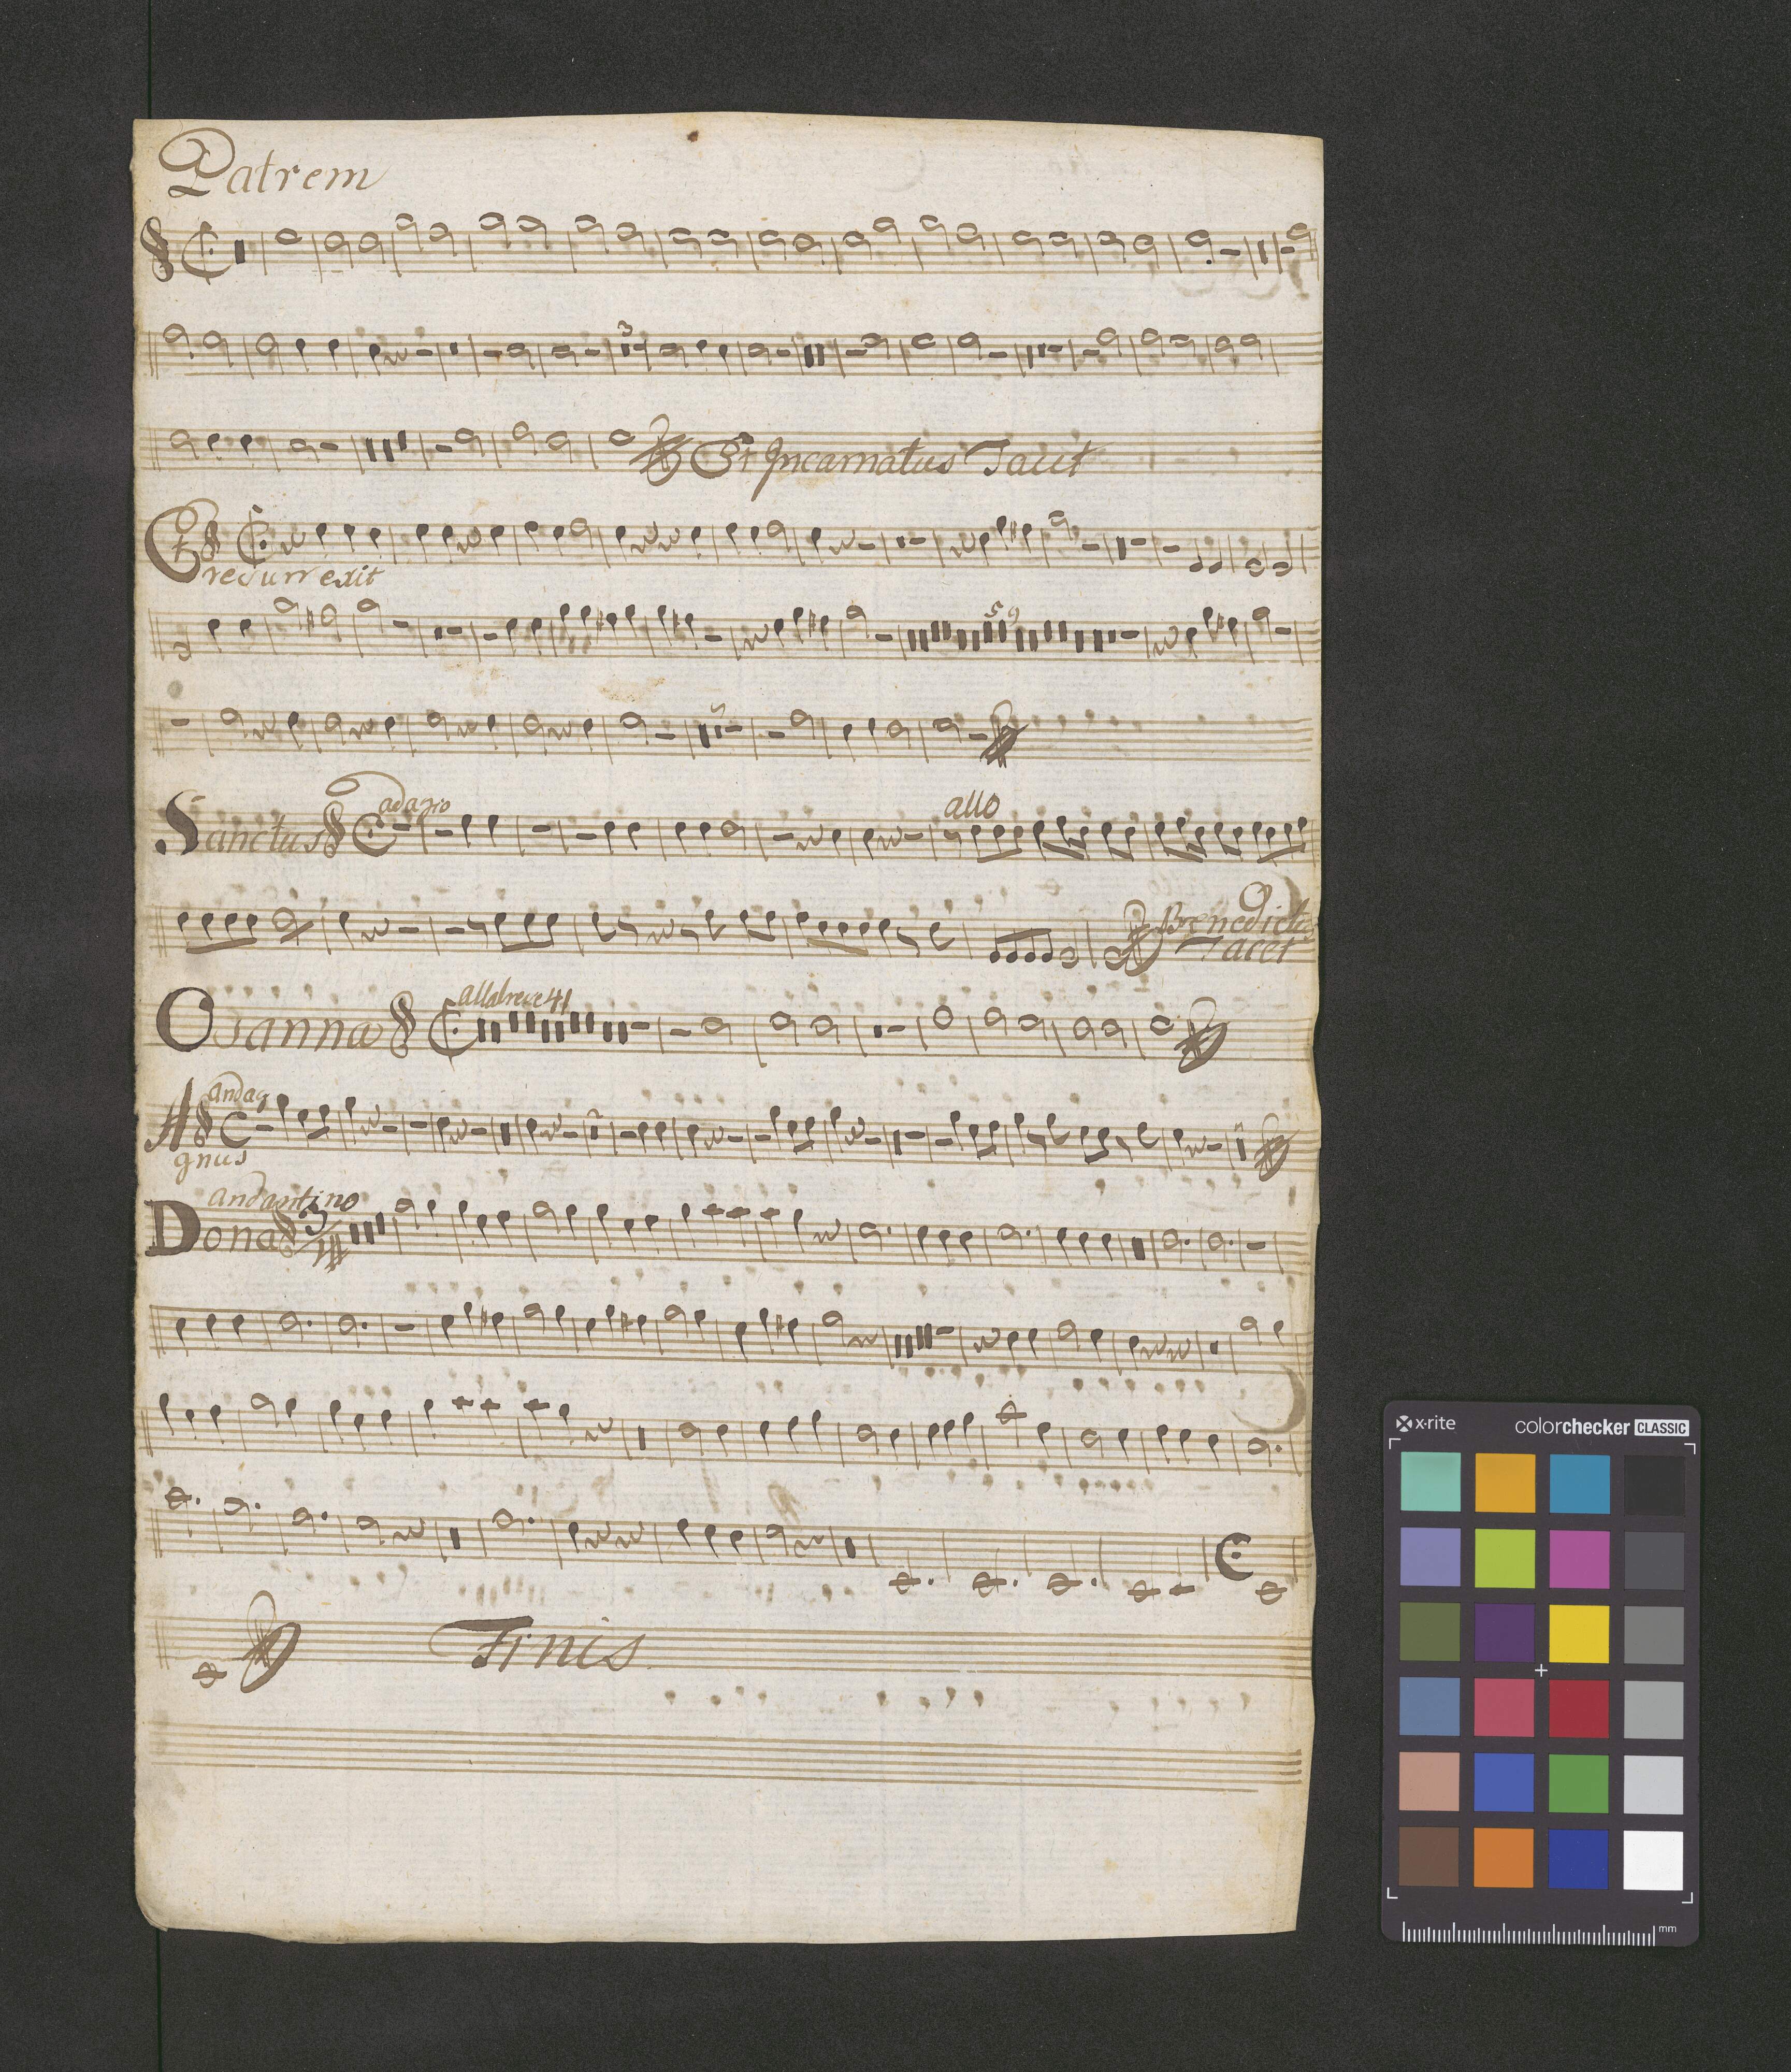 Patrem
3
Et Incarnatus Tacet
Et
resurrexit
59
5
Sanctus adagio allo
Benedictus
Tacet
Osanna allabreve 41
Agnus andag
2
2
Dona andantino 3/4
Finis
x-rite colorchecker CLASSIC
mm